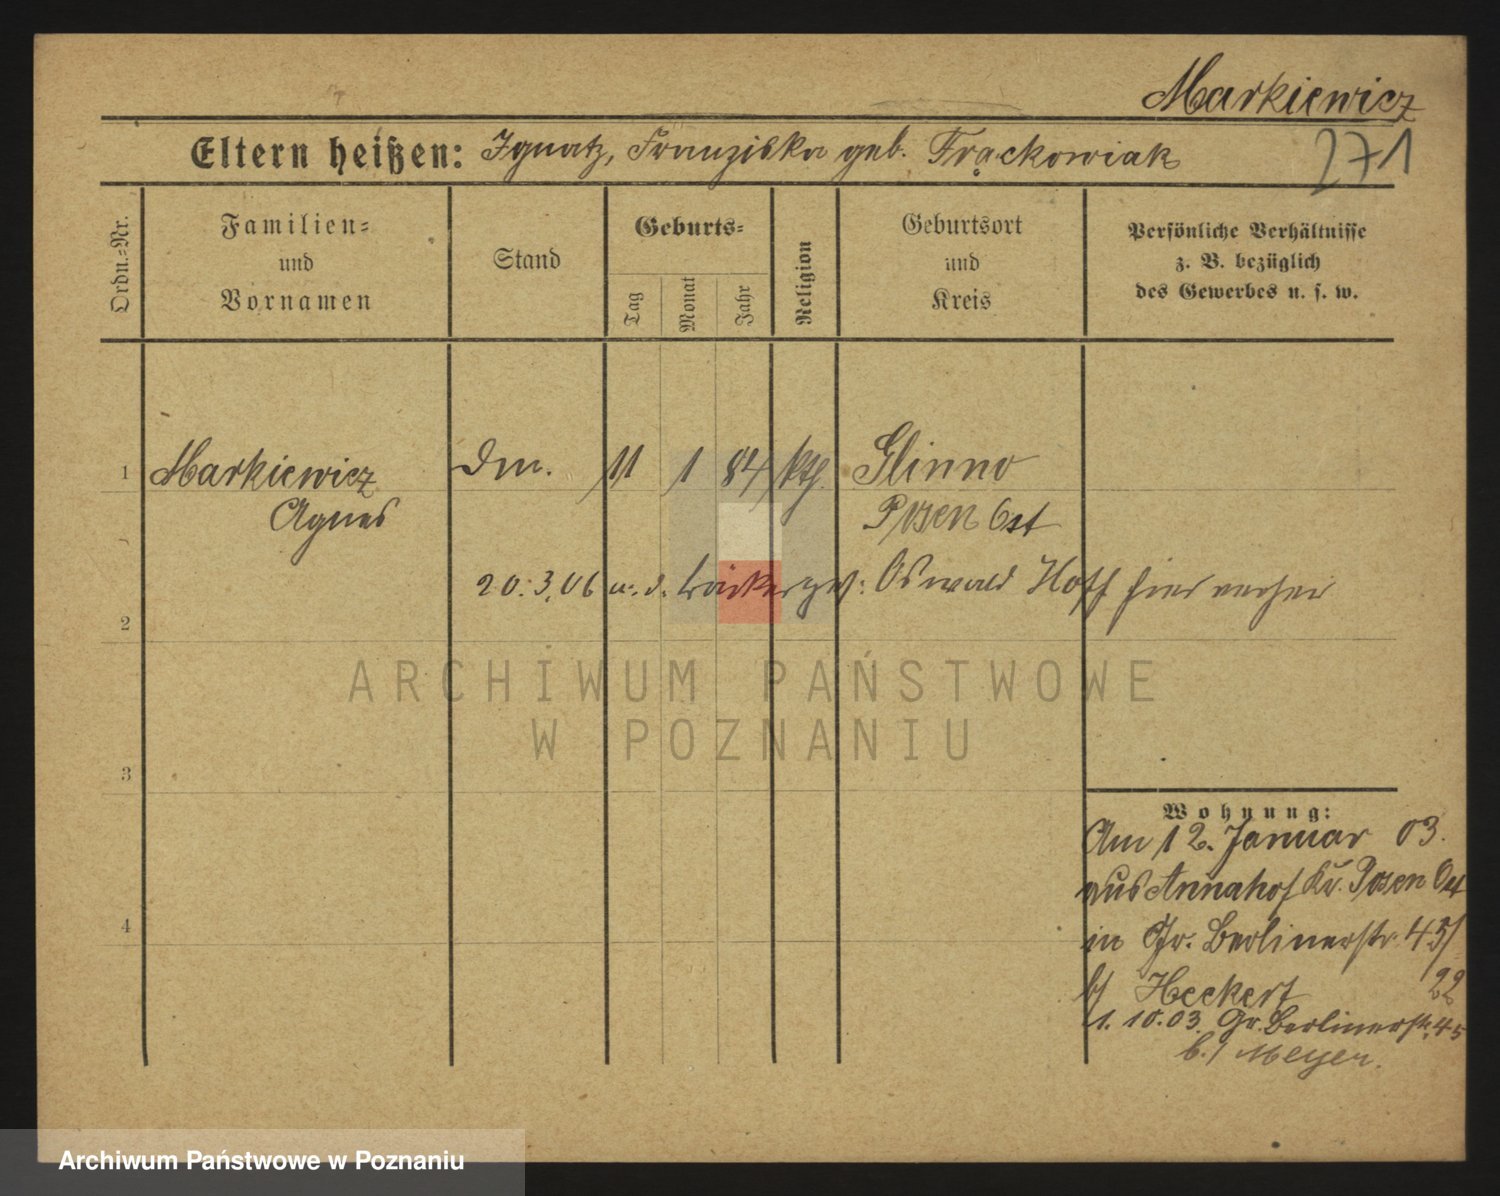 Markiewicz
271
Eltern heißen: Ignatz, Franziska geb. Frąckowiak
Ordn.-Nr.
Familien-
und
Vornamen
Stand
Geburts-
Tag
Monat
Jahr
Religion
Geburtsort
und
Kreis
Persönliche Verhältnisse
z. B. bezüglich
des Gewerbes u. s. w.
1 Markiewicz Dm. 11 1 84 kth. Glinno
Agnes Posen Ost
20.3.06 m. d. Bäckerges. Oswald Hoff hier verhei
2
ARCHIWUM PAŃSTWOWE
W POZNANIU
3
Wohnung:
Am 12. Januar 03.
aus Annahof Kr. Posen Ost
4
in Gr. Berlinerstr. 45/
b/ Heckert 22
1. 10.03. Gr. Berlinerstr. 45
b./ Meyer.
Archiwum Państwowe w Poznaniu